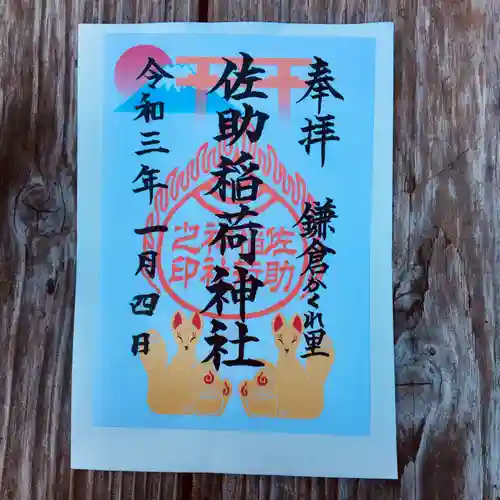 奉拝
鎌倉かくれ里
佐助稲荷神社
令和三年一月四日
佐助
稲荷
神社
之印